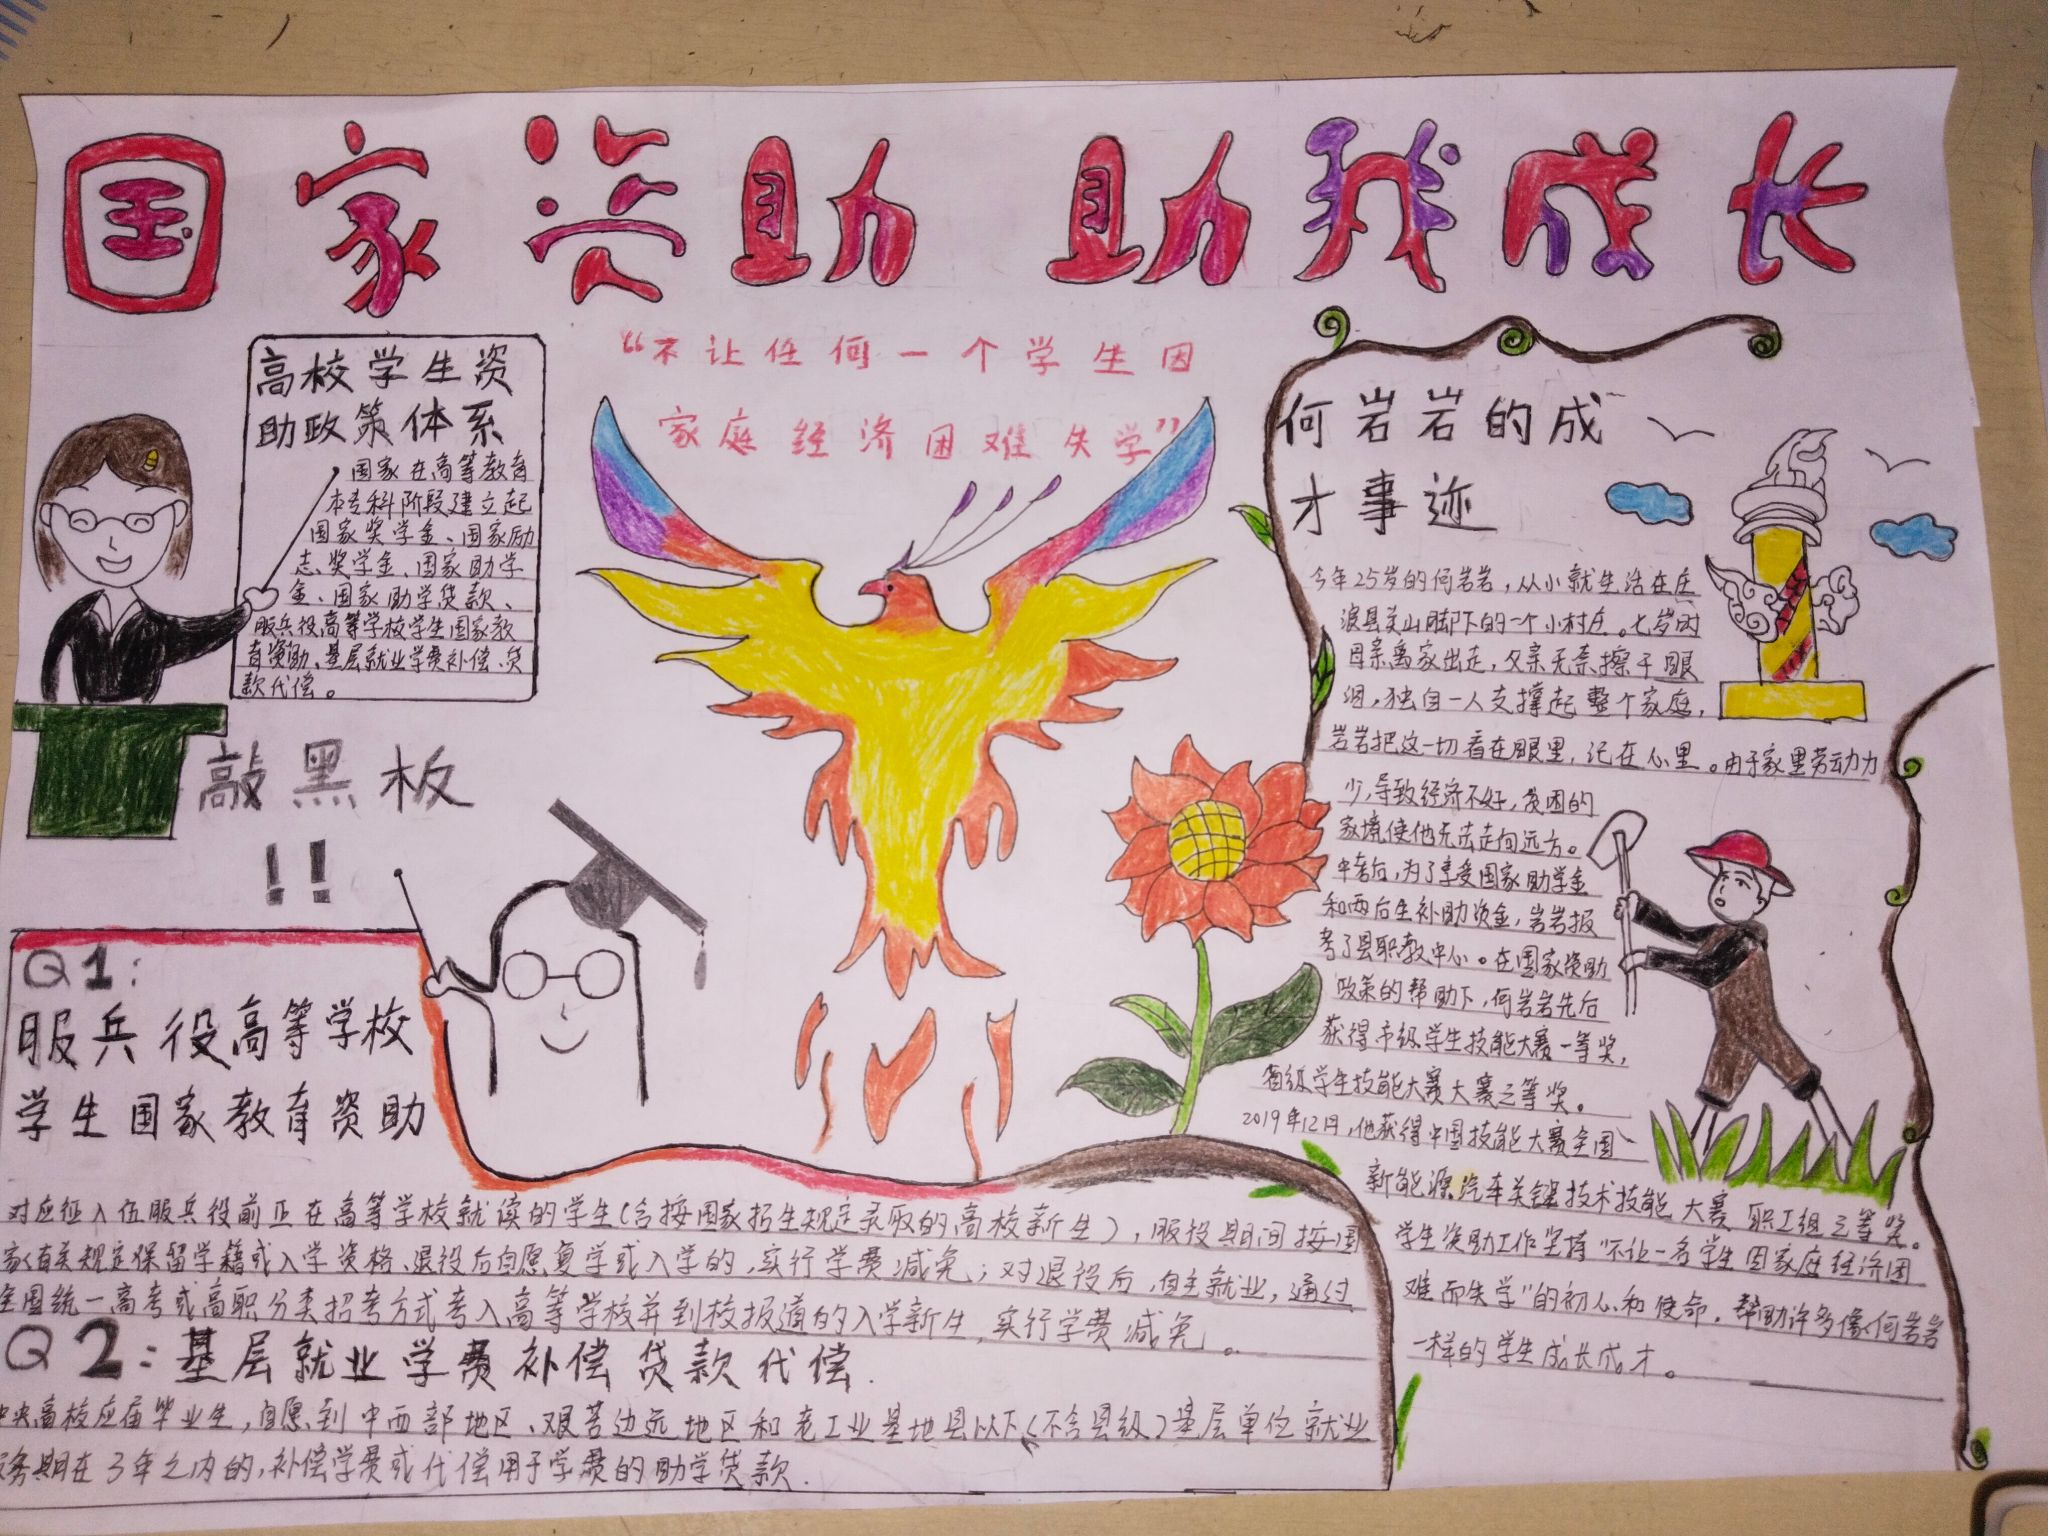 国家资助 助我成长
“不让任何一个学生因
家庭经济困难失学”
高校学生资
助政策体系
国家在高等教育
本专科阶段建立起
国家奖学金、国家励
志奖学金、国家助学
金、国家助学贷款、
服兵役高等学校学生国家教
育资助、基层就业学费补偿、贷
款代偿。
敲黑板
!!
Q1:
服兵役高等学校
学生国家教育资助
对应征入伍服兵役前正在高等学校就读的学生(含按国家招生规定录取的高校新生),服役期间按国
家有关规定保留学籍或入学资格、退役后自愿复学或入学的,实行学费减免;对退役后,自主就业,通过
全国统一高考或高职分类招考方式考入高等学校并到校报道的入学新生,实行学费减免。
Q2:基层就业学费补偿贷款代偿.
中央高校应届毕业生,自愿到中西部地区、艰苦边远地区和老工业基地县以下(不含县级)基层单位就业
服务期在3年之内的,补偿学费或代偿用于学费的助学贷款.
何岩岩的成
才事迹
今年25岁的何岩岩,从小就生活在庄
浪县关山脚下的一个小村庄。七岁时
母亲离家出走,父亲无奈擦干眼
泪,独自一人支撑起整个家庭,
岩岩把这一切看在眼里,记在心里。由于家里劳动力
少,导致经济不好,贫困的
家境使他无法走向远方。
中考后,为了享受国家助学金
和两后生补助资金,岩岩报
考了县职教中心。在国家资助
政策的帮助下,何岩岩先后
获得市级学生技能大赛一等奖,
省级学生技能大赛大赛三等奖。
2019年12月,他获得中国技能大赛全国
新能源汽车关键技术技能大赛职工组三等奖。
学生资助工作坚持“不让一名学生因家庭经济困
难而失学”的初心和使命,帮助许多像何岩岩
一样的学生成长成才。